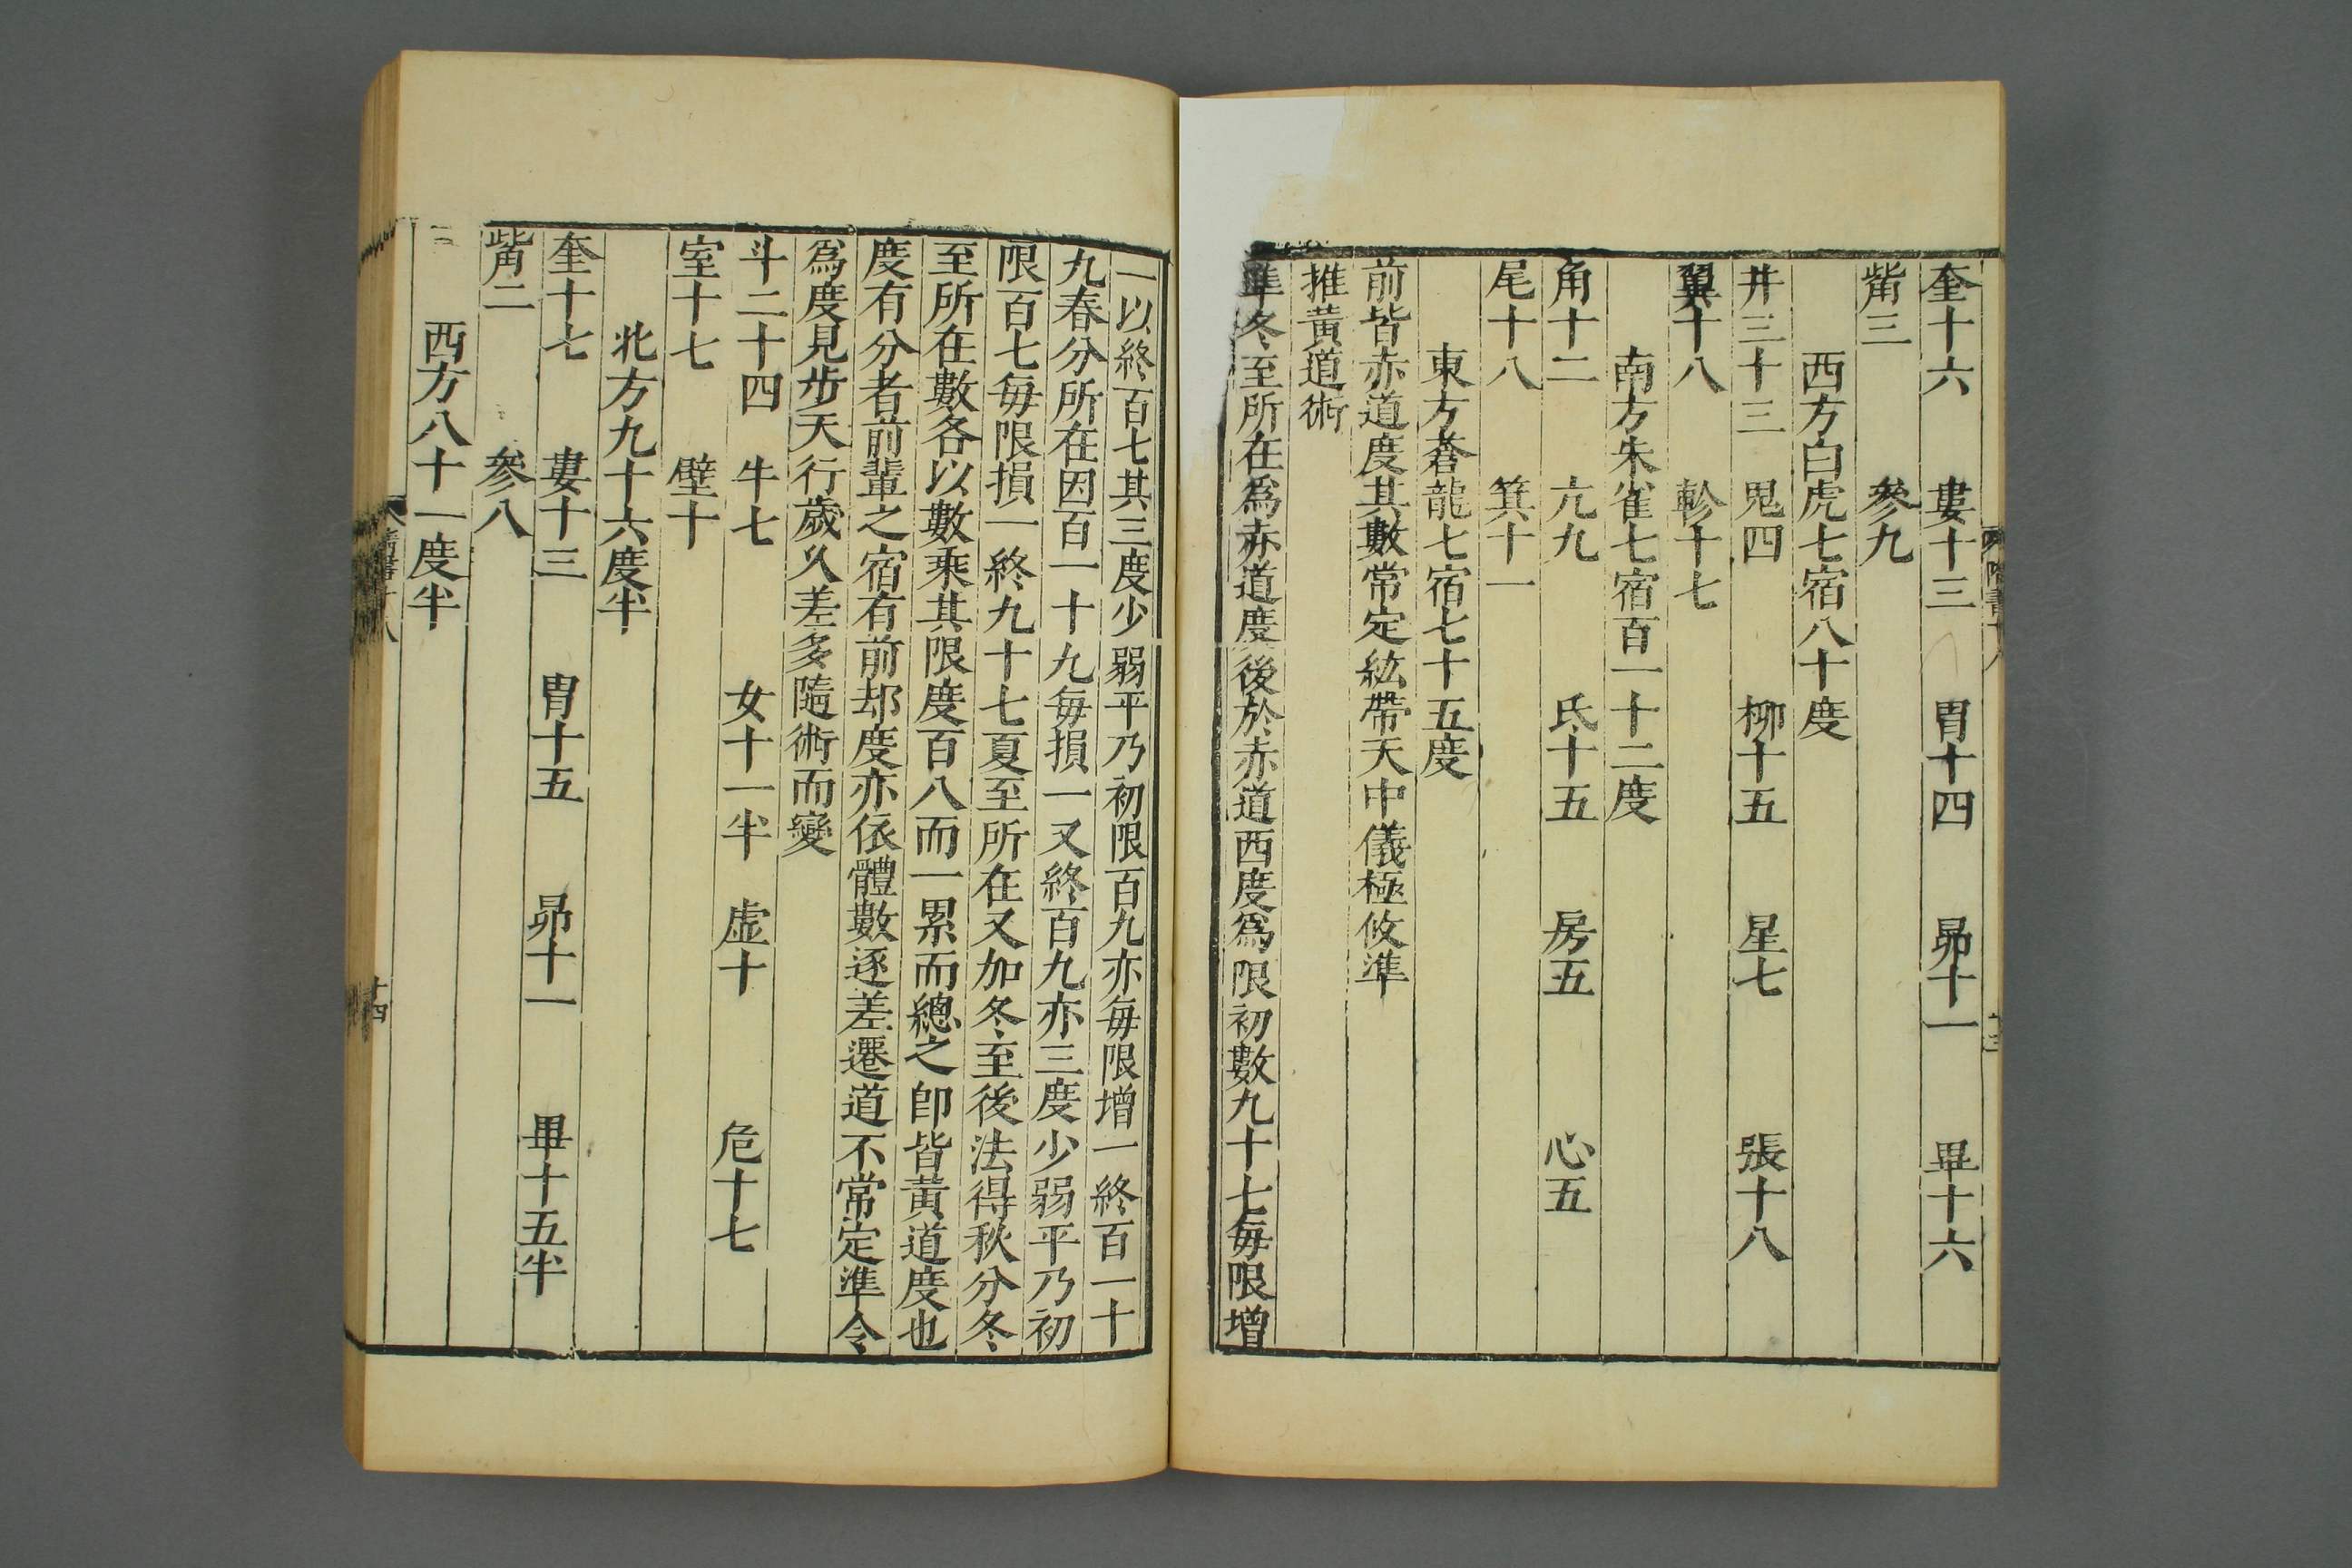 奎十六 婁十三 胃十四 昴十一 畢十六
觜三 參九
西方白虎七宿八十度
井三十三 鬼四 柳十五 星七 張十八
翼十八 軫十七
南方朱雀七宿百一十二度
角十二 亢九 氐十五 房五 心五
尾十八 箕十一
東方蒼龍七宿七十五度
前皆赤道度其數常定紘帶天中儀極攸準
推黃道術
準冬至所在爲赤道度後於赤道西度爲限初數九十七每限增
一以終百七其三度少弱平乃初限百九亦每限增一終百一十
九春分所在因百一十九每損一又終百九亦三度少弱平乃初
限百七每限損一終九十七夏至所在又加冬至後法得秋分冬
至所在數各以數乘其限度百八而一累而總之卽皆黃道度也
度有分者前輩之宿有前却度亦依體數逐差遷道不常定準令
爲度見步天行歲久差多隨術而變
斗二十四 牛七 女十一半 虛十 危十七
室十七 壁十
北方九十六度半
奎十七 婁十三 胃十五 昴十一 畢十五半
觜二 參八
西方八十一度半
十四